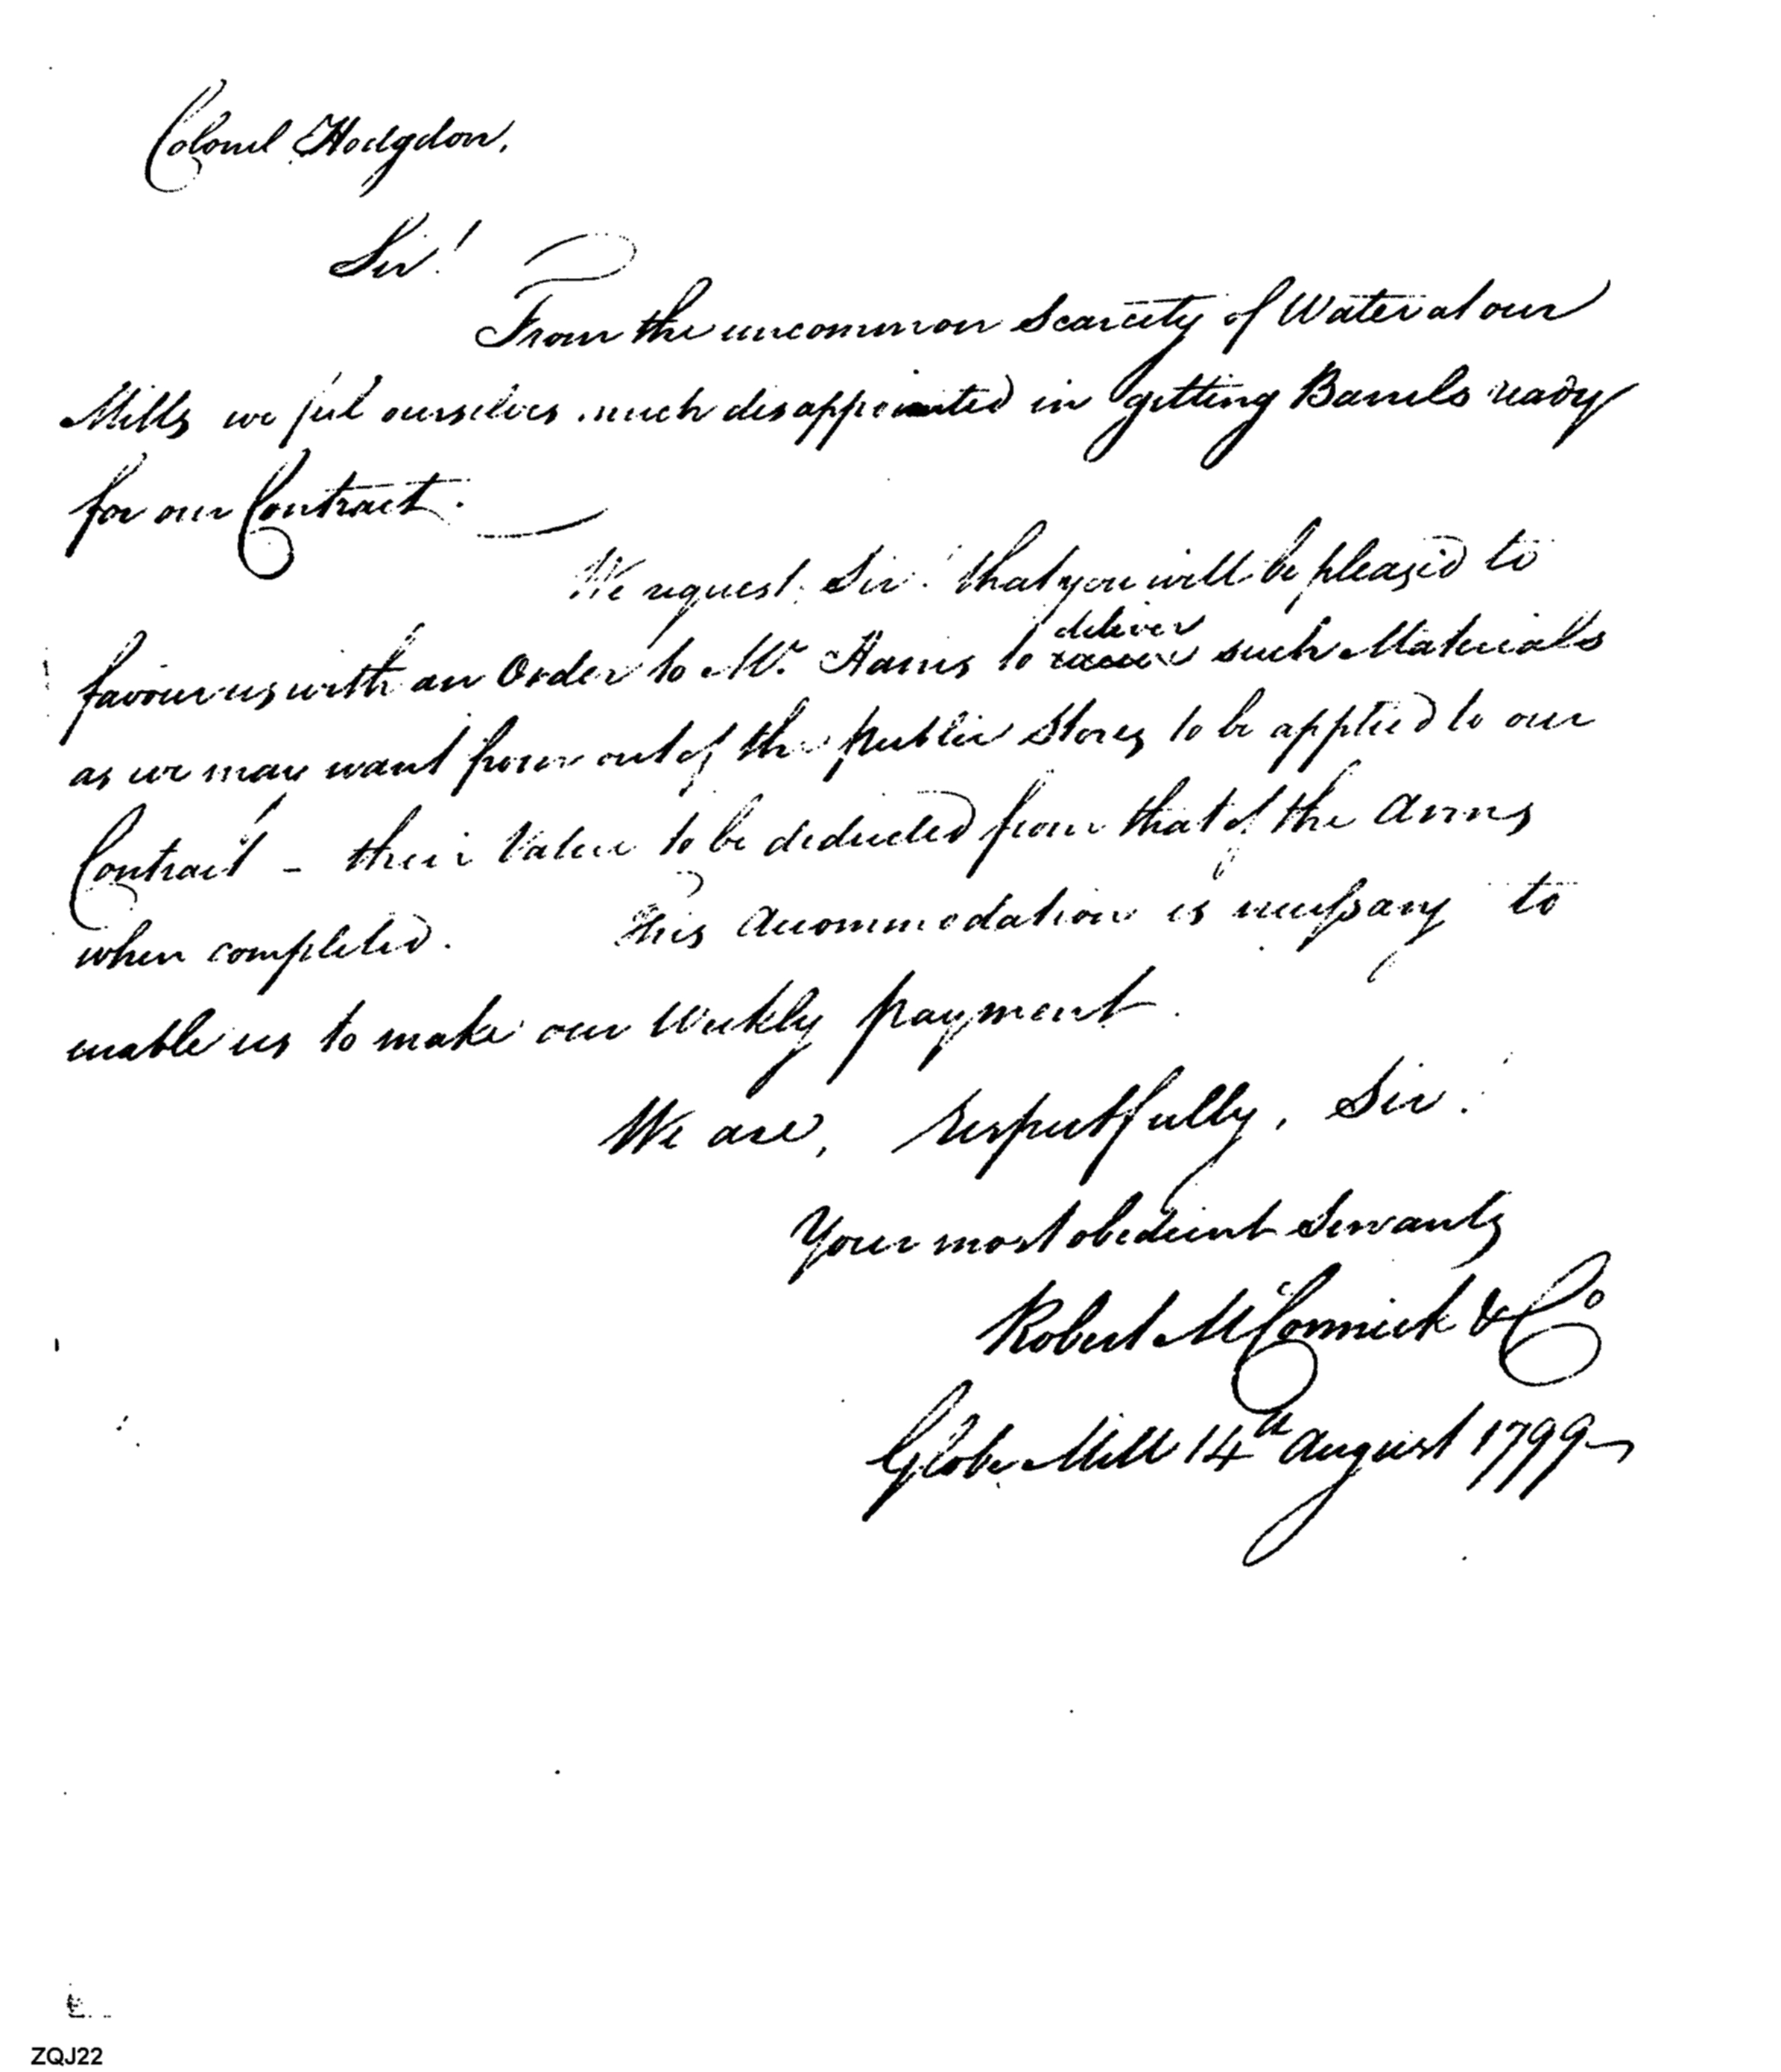 Colonel Hodgdon,
Sir!
From the uncommon Scarcity of Water at our
Mills we feel ourselves much disappointed in getting Barrels ready
for our Contract.
We request, Sir! that you will be pleased to
deliver
favour us with an Order to Mr. Harris to such Materials
as we may want from out of the public Stores to be applied to our
Contract - their Value to be deducted from that of the Arms
when completed. This Accommodation is necessary to
enable us to make our Weekly payment.
We are, respectfully, Sir!
Your most obedient Servants
Robert McCormick & Co
Globe Mill 14th August 1799
ZQJ22